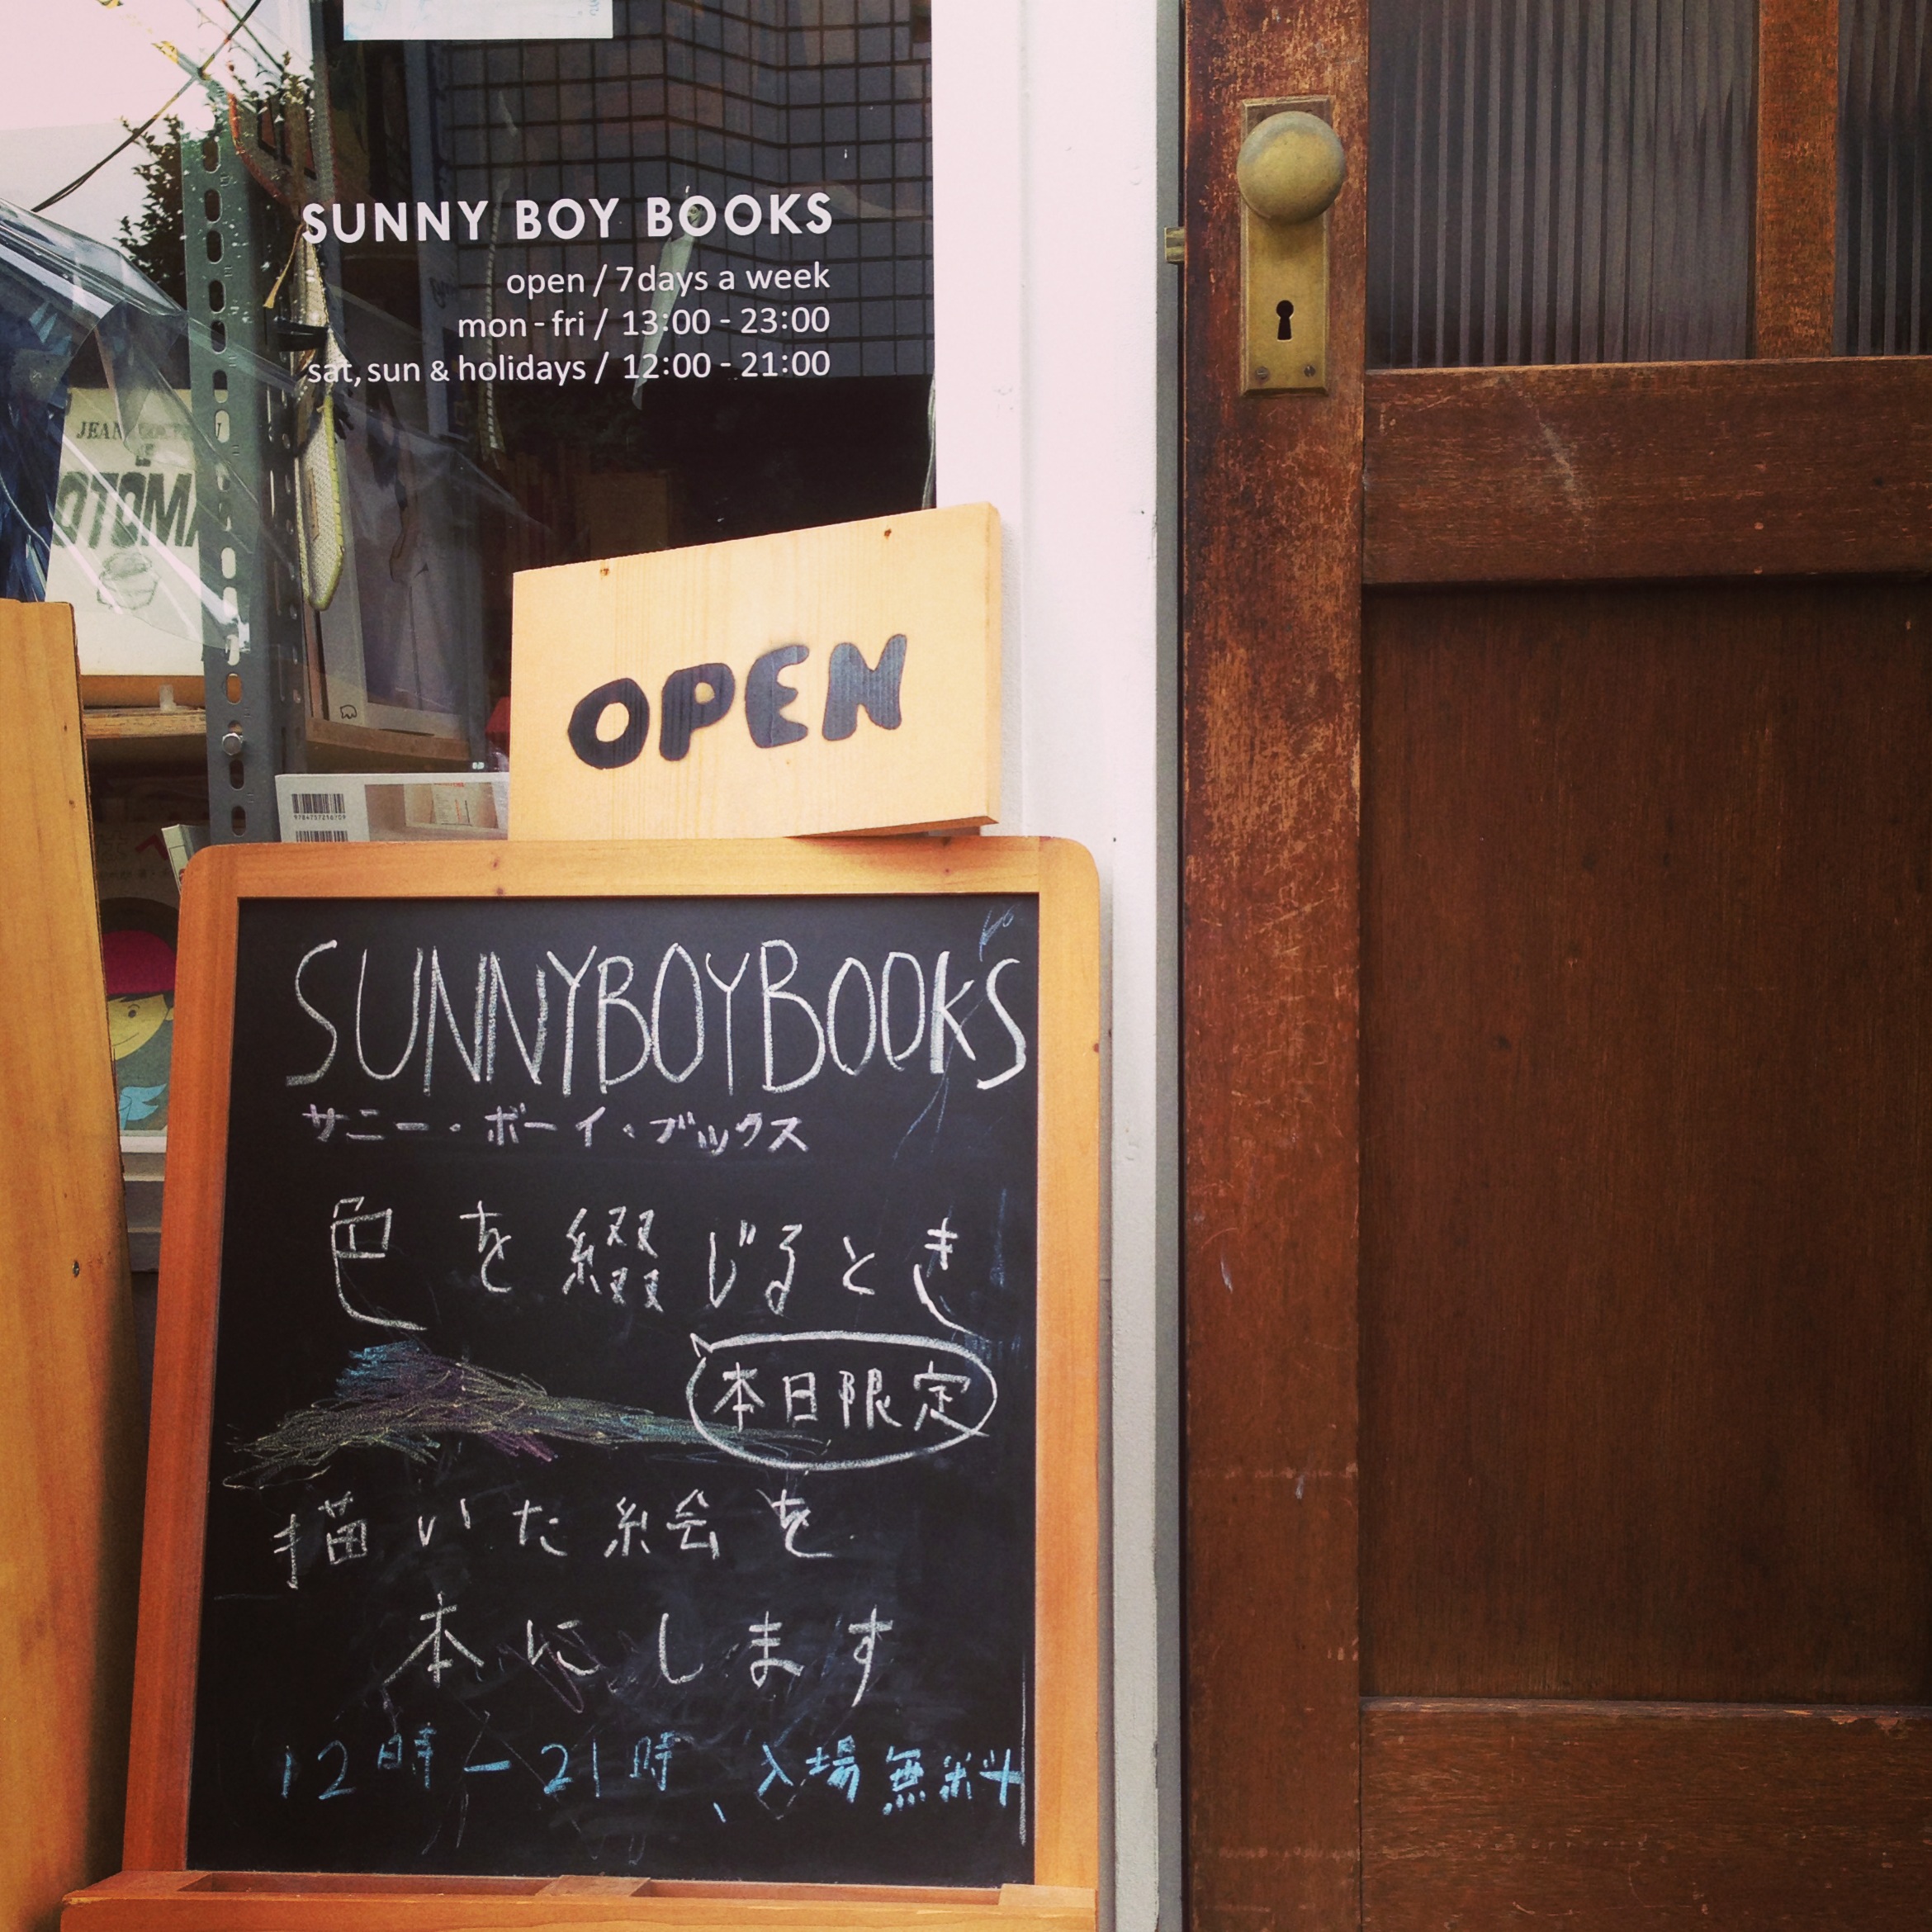 SUNNY BOY BOOKS
open / 7days a week
mon - fri / 13:00 - 23:00
sat, sun & holidays / 12:00 - 21:00
JEAN
OPEN
SUNNYBOYBOOKS
サニー・ボーイ・ブックス
色を綴じるとき
本日限定
描いた絵を
本にします
12時-21時、入場無料